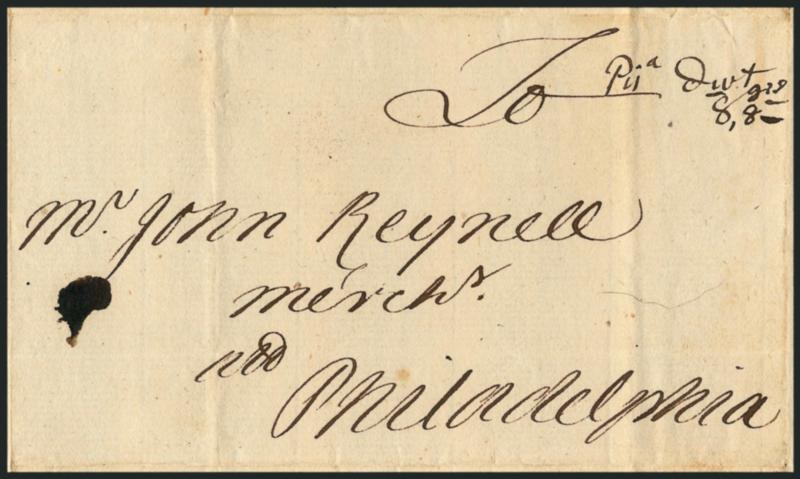 To Pija Dwt grs
8,8
Mr. John Reynell
merchr.
Philadelphia